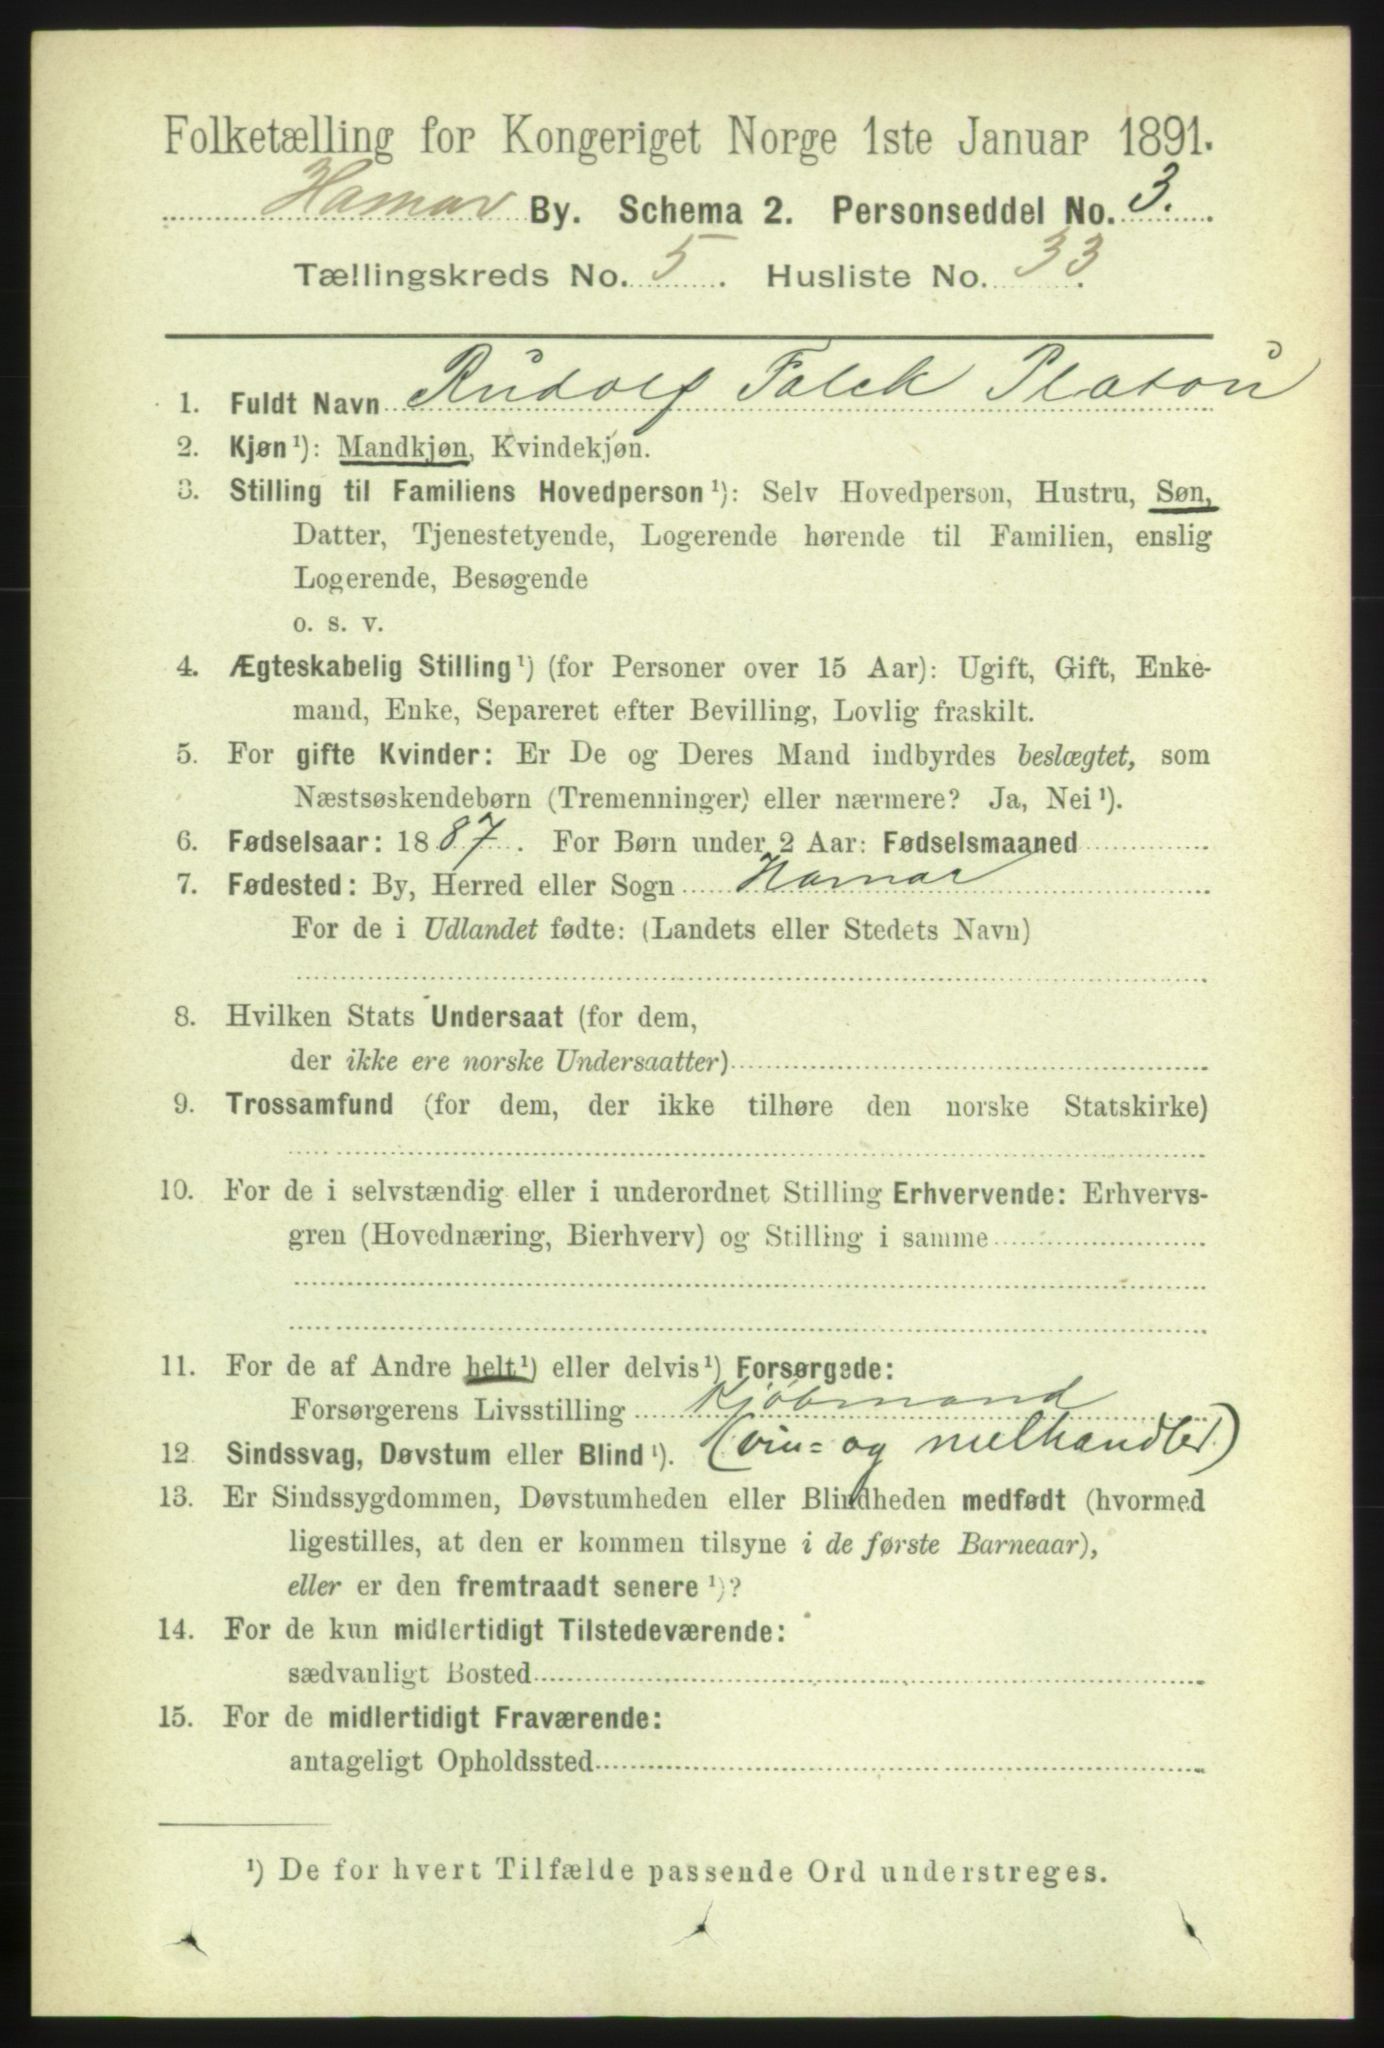 Folketælling for Kongeriget Norge 1ste Januar 1891.
Hamar By. Schema 2. Personseddel No. 3.
Tællingskreds No. 5. Husliste No. 33.
1. Fuldt Navn Rudolf Falck Platou
2. Kjøn¹): Mandkjøn, Kvindekjøn.
3. Stilling til Familiens Hovedperson¹): Selv Hovedperson, Hustru, Søn,
Datter, Tjenestetyende, Logerende hørende til Familien, enslig
Logerende, Besøgende
o. s. v.
4. Ægteskabelig Stilling¹) (for Personer over 15 Aar): Ugift, Gift, Enke-
mand, Enke, Separeret efter Bevilling, Lovlig fraskilt.
5. For gifte Kvinder: Er De og Deres Mand indbyrdes beslægtet, som
Næstsøskendebørn (Tremenninger) eller nærmere? Ja, Nei¹).
6. Fødselsaar: 1887. For Børn under 2 Aar: Fødselsmaaned
7. Fødested: By, Herred eller Sogn Hamar
For de i Udlandet fødte: (Landets eller Stedets Navn)
8. Hvilken Stats Undersaat (for dem,
der ikke ere norske Undersaatter)
9. Trossamfund (for dem, der ikke tilhøre den norske Statskirke)
10. For de i selvstændig eller i underordnet Stilling Erhvervende: Erhvervs-
gren (Hovednæring, Bierhverv) og Stilling i samme
11. For de af Andre helt¹) eller delvis¹) Forsørgede:
Forsørgerens Livsstilling Kjøbmand
12. Sindssvag, Døvstum eller Blind¹). (vin= og melhandler)
13. Er Sindssygdommen, Døvstumheden eller Blindheden medfødt (hvormed
ligestilles, at den er kommen tilsyne i de første Barneaar),
eller er den fremtraadt senere¹)?
14. For de kun midlertidigt Tilstedeværende:
sædvanligt Bosted
15. For de midlertidigt Fraværende:
antageligt Opholdssted
¹) De for hvert Tilfælde passende Ord understreges.